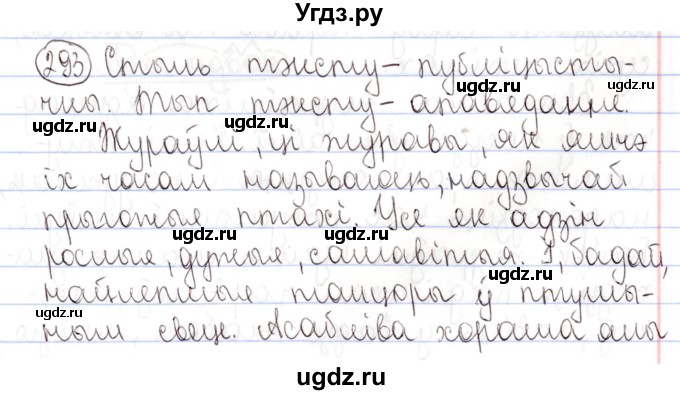 Угдз.ру
293 Стыль тэксту – публіцысты-
чны. Тып тэксту – апавяданне.
ugdz.ru ugdz.ru
Жураўлі, ці журавы, як яшчэ
іх часам называюць, надзвычай
прыгожыя птахі. Усе як адзін
ugdz.ru ugdz.ru
рослыя, дужыя, самавітыя. І, бадай,
ugdz.ru
найлепшыя танцоры ў птушы-
ugdz.ru ugdz.ru
ным свеце. Асабліва хораша яны
ugdz.ru